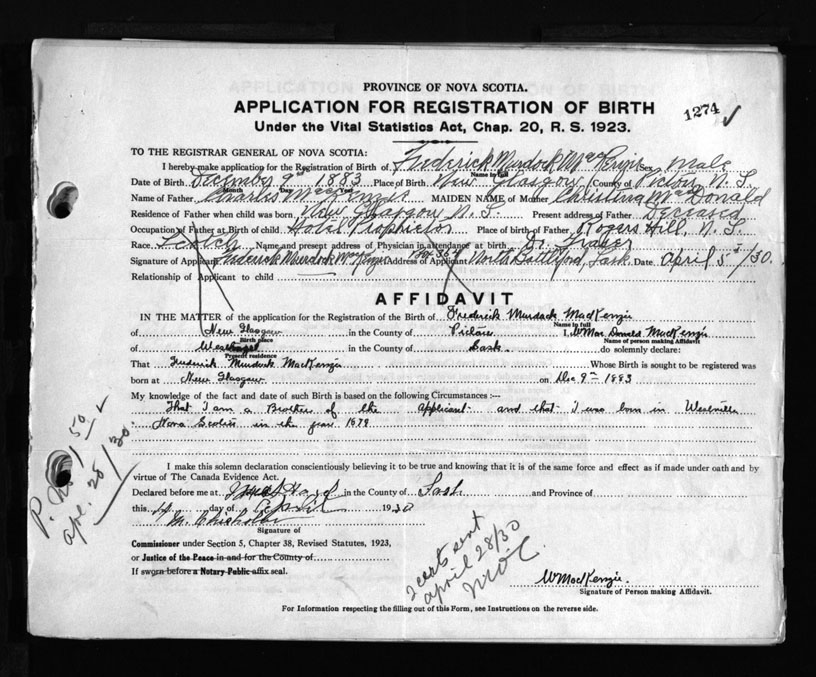 PROVINCE OF NOVA SCOTIA.
APPLICATION FOR REGISTRATION OF BIRTH
1274 ✓
Under the Vital Statistics Act, Chap. 20, R. S. 1923.
TO THE REGISTRAR GENERAL OF NOVA SCOTIA:
I hereby make application for the Registration of Birth of Frederick Murdock MacKenzie Sex Male
Name in full
Date of Birth December 9th 1883 Place of Birth New Glasgow County of Pictou N. S.
Month Day Year
Name of Father Charles McKenzie MAIDEN NAME of Mother Christina MacDonald
Residence of Father when child was born New Glasgow N. S. Present address of Father Deceased
Occupation of Father at Birth Hotel Proprietor Place of birth of Father Rogers Hill, N. S.
Race Scotch Name and present address of Physician in attendance at birth Dr. Fraser
Signature of Applicant Frederick Murdock MacKenzie Address of Applicant Box 364 North Battleford, Sask. Date April 5th/30.
Relationship of Applicant to child
AFFIDAVIT
IN THE MATTER of the application for the Registration of the Birth of Frederick Murdock MacKenzie
Name in full
of New Glasgow in the County of Pictou I, W Mac Donald MacKenzie
Birth place Name of person making Affidavit
of in the County of Sask. do solemnly declare:
Present residence
That Frederick Murdock MacKenzie Whose Birth is sought to be registered was
born at New Glasgow on Dec 9th 1883
My knowledge of the fact and date of such Birth is based on the following Circumstances:—
That I am a Brother of the applicant and that I was born in Westville
Nova Scotia in the year 1879
P. N. 1 50 ✓
apl. 25/30
I make this solemn declaration conscientiously believing it to be true and knowing that it is of the same force and effect as if made under oath and by
virtue of The Canada Evidence Act.
Declared before me at in the County of Sask and Province of
this day of April 1930
M. Chisholm
Signature of
Commissioner under Section 5, Chapter 38, Revised Statutes, 1923,
or Justice of the Peace in and for the County of
If sworn before a Notary Public affix seal.
2 certs sent
april 28/30
W MacKenzie.
Signature of Person making Affidavit.
For Information respecting the filling out of this Form, see Instructions on the reverse side.